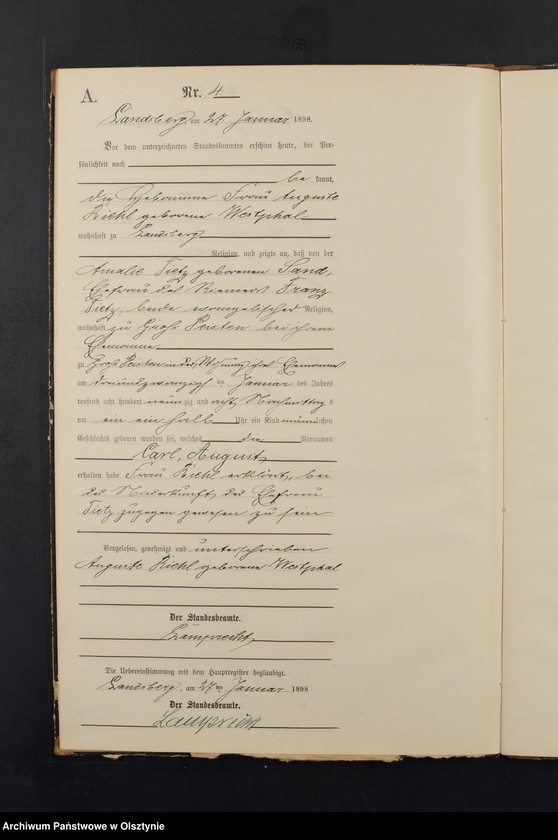 A.
Nr. 4
Landsberg am 27 Januar 1898.
Vor dem unterzeichneten Standesbeamten erschien heute, der Per-
sönlichkeit nach
be kannt,
die Hebamme Frau Auguste
Riehl geborene Westphal
wohnhaft zu Landsberg
Religion, und zeigte an, daß von der
Amalie Tietz geborenen Sand,
Ehefrau des Riemers Franz
Tietz, beide evangelischer Religion,
wohnhaft zu Groß Peisten bei ihrem
Ehemanne
zu Groß Peisten in der Wohnung ihres Ehemannes
am dreiundzwanzigsten Januar des Jahres
tausend acht hundert neunzig und acht Nachmittags
um ein ein halb Uhr ein Kind männlichen
Geschlechts geboren worden sei, welches die Vornamen
Carl, August,
erhalten habe Frau Riehl erklärt, bei
der Niederkunft der Ehefrau
Tietz zugegen gewesen zu sein
Vorgelesen, genehmigt und unterschrieben
Auguste Riehl geborene Westphal
Der Standesbeamte.
Lamprecht
Die Uebereinstimmung mit dem Hauptregister beglaubigt.
Landsberg, am 27ten Januar 1898
Der Standesbeamte.
Lamprecht
Archiwum Państwowe w Olsztynie